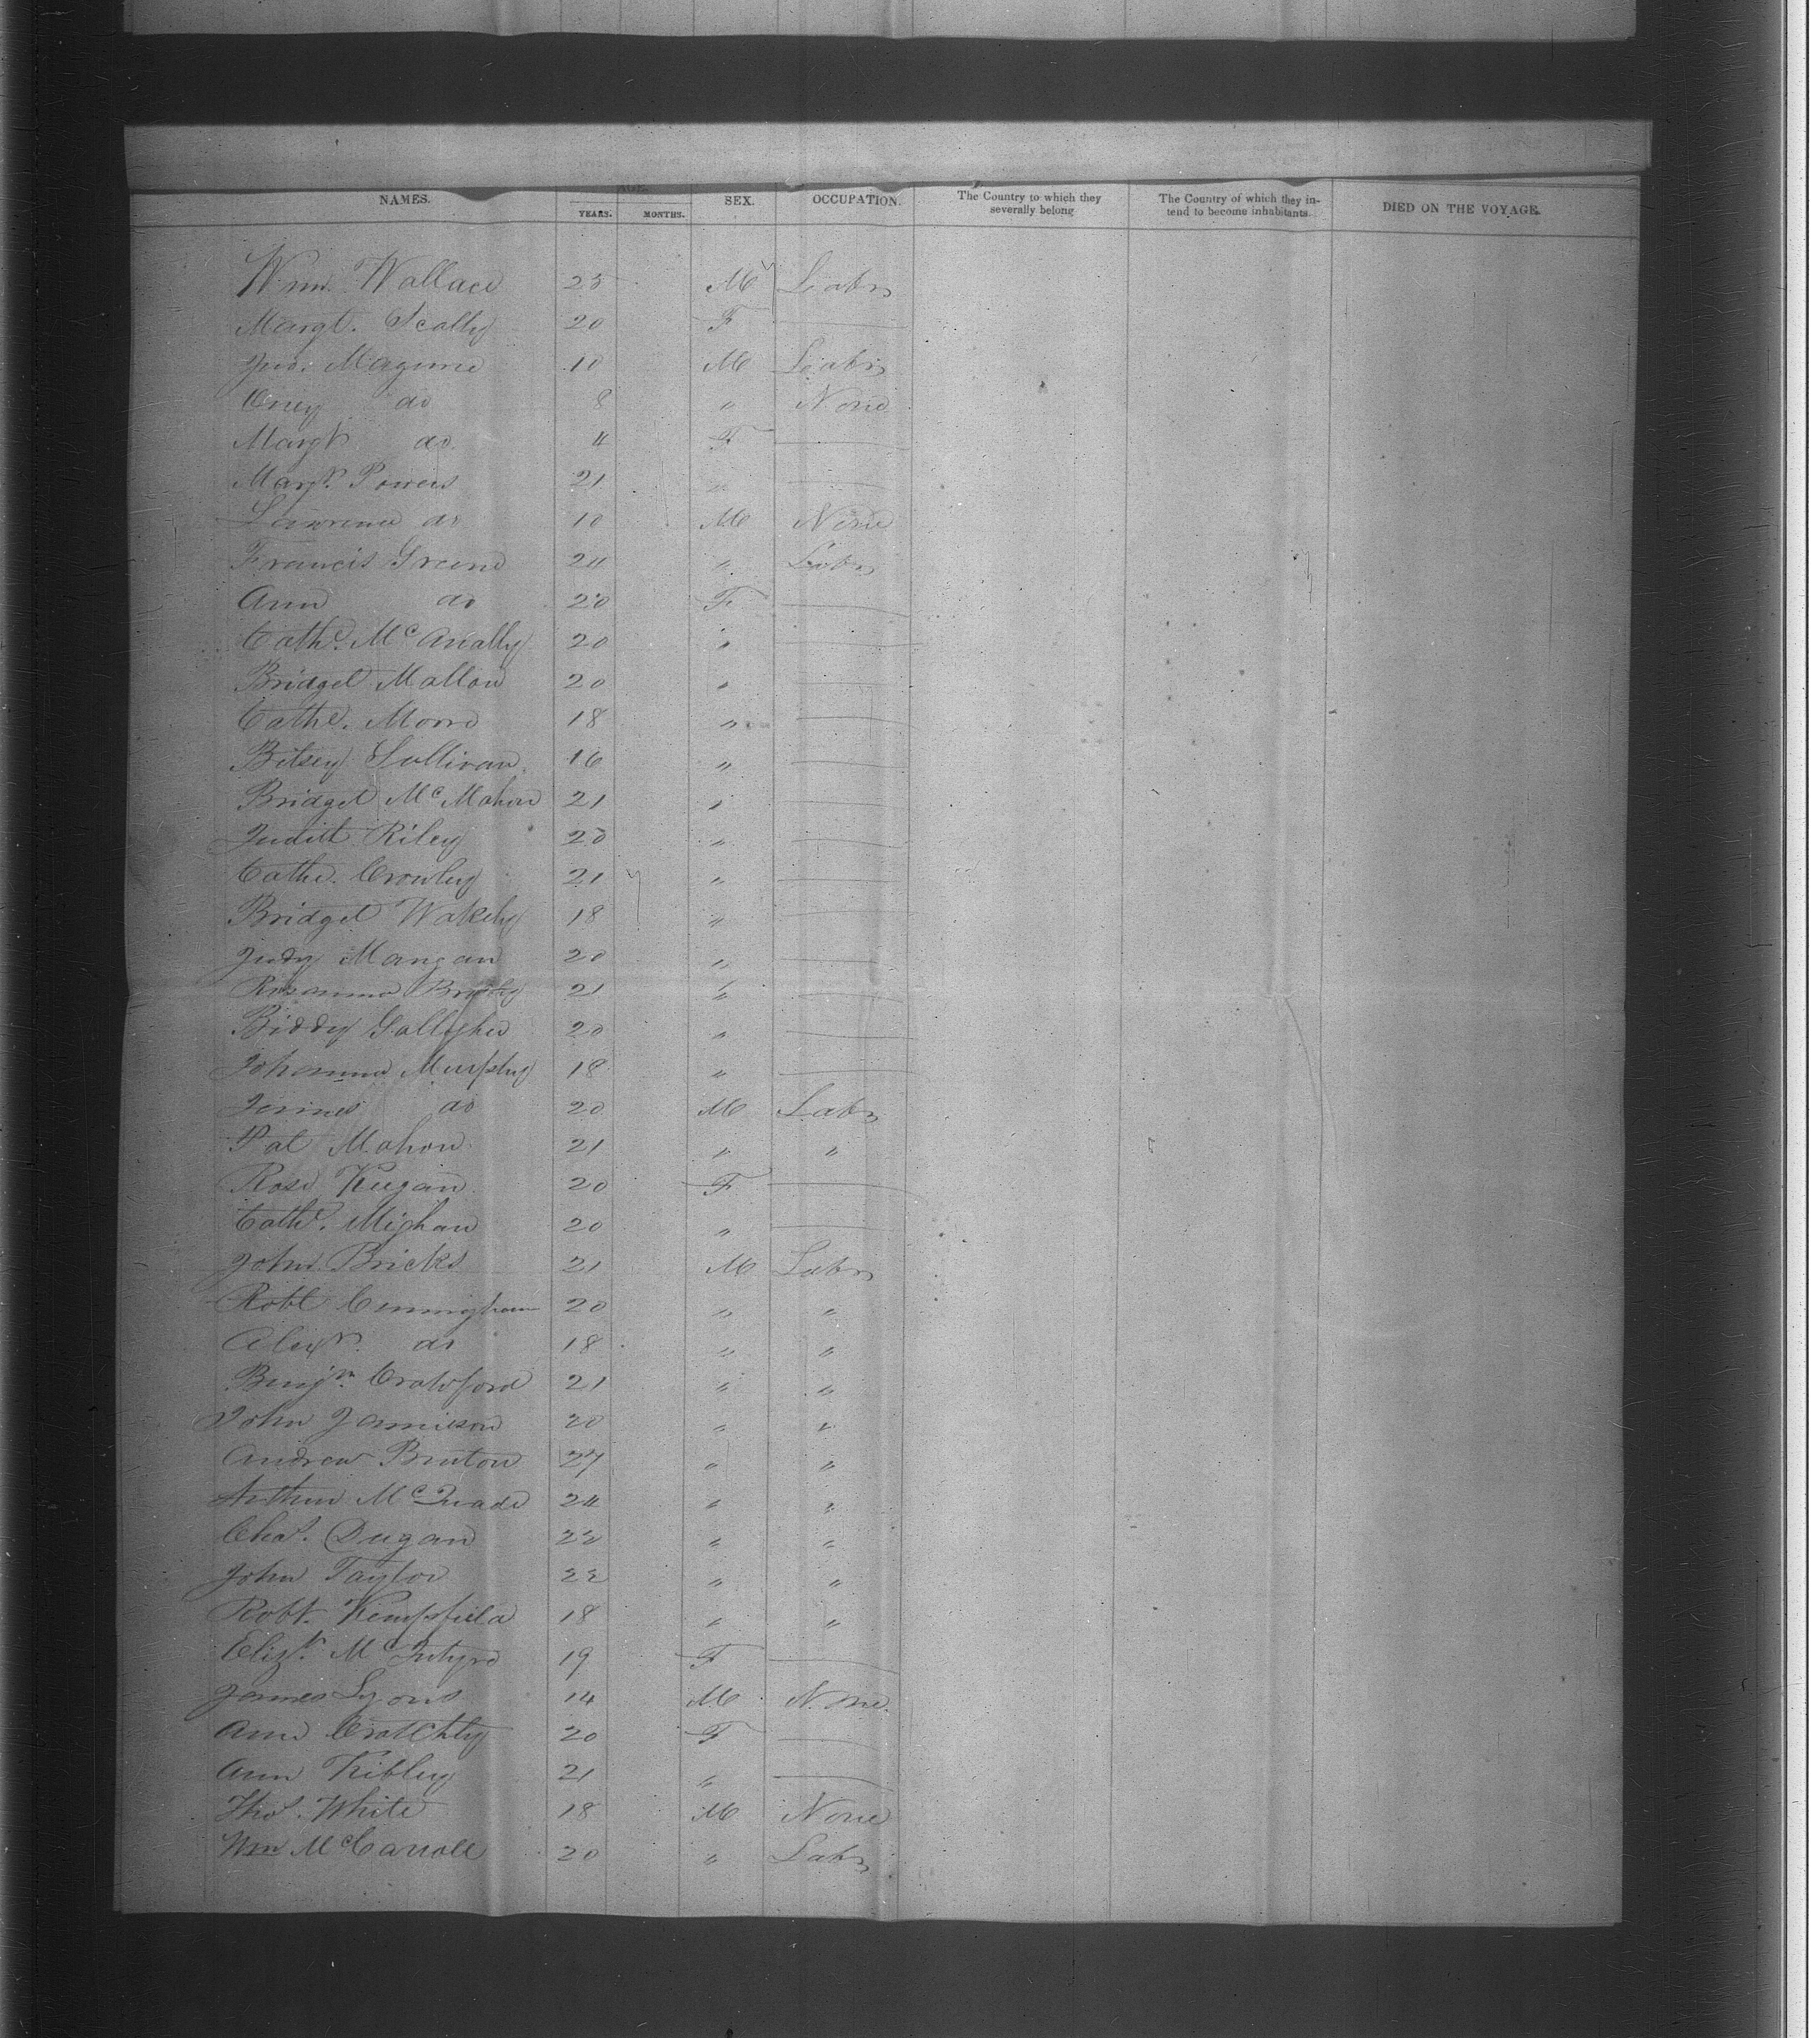 NAMES. AGE YEARS. MONTHS. SEX. OCCUPATION. The Country to which they severally belong The Country of which they intend to become inhabitants. DIED ON THE VOYAGE.
Wm. Wallace 23 M Labr
Margt. Scally 20 F —
Jno. Maguire 10 M Labr
Oney do 8 " None
Margt do 4 F —
Margt. Powers 21 " —
Lawrence do 10 M None
Francis Greene 24 " Labr
Ann do 20 F —
Cathe. McAnally 20 " —
Bridget Mallon 20 " —
Cathe. Moore 18 " —
Bitsey Sullivan 16 " —
Bridget McMahon 21 " —
Judith Riley 20 " —
Cathe. Crowley 21 " —
Bridget Wakely 18 " —
Judy Mangan 20 " —
Rosanna 21 " —
Biddy Gallagher 20 " —
Johanna Murphy 18 " —
James do 20 M Labr
Pat Mahon 21 " "
Rose Keegan 20 F —
Cathe. Mighan 20 " —
John Bricks 21 M Labr
Robt Cunningham 20 " "
Alexr. do 18 " "
Benjn. Crawford 21 " "
John Jamieson 20 " "
Andrew Bruton 27 " "
Arthur McQuade 24 " "
Chas. Dugan 22 " "
John Taylor 22 " "
Robt. Kempfield 18 " "
Elizt. McIntyre 19 F —
James Lyons 14 M None
Ann Crotchly 20 F —
Ann Kibley 21 " —
Thos. White 18 M None
Wm McCarroll 20 " Labr